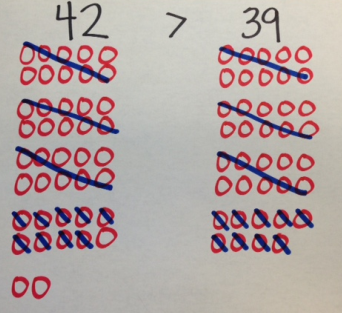 42 > 39